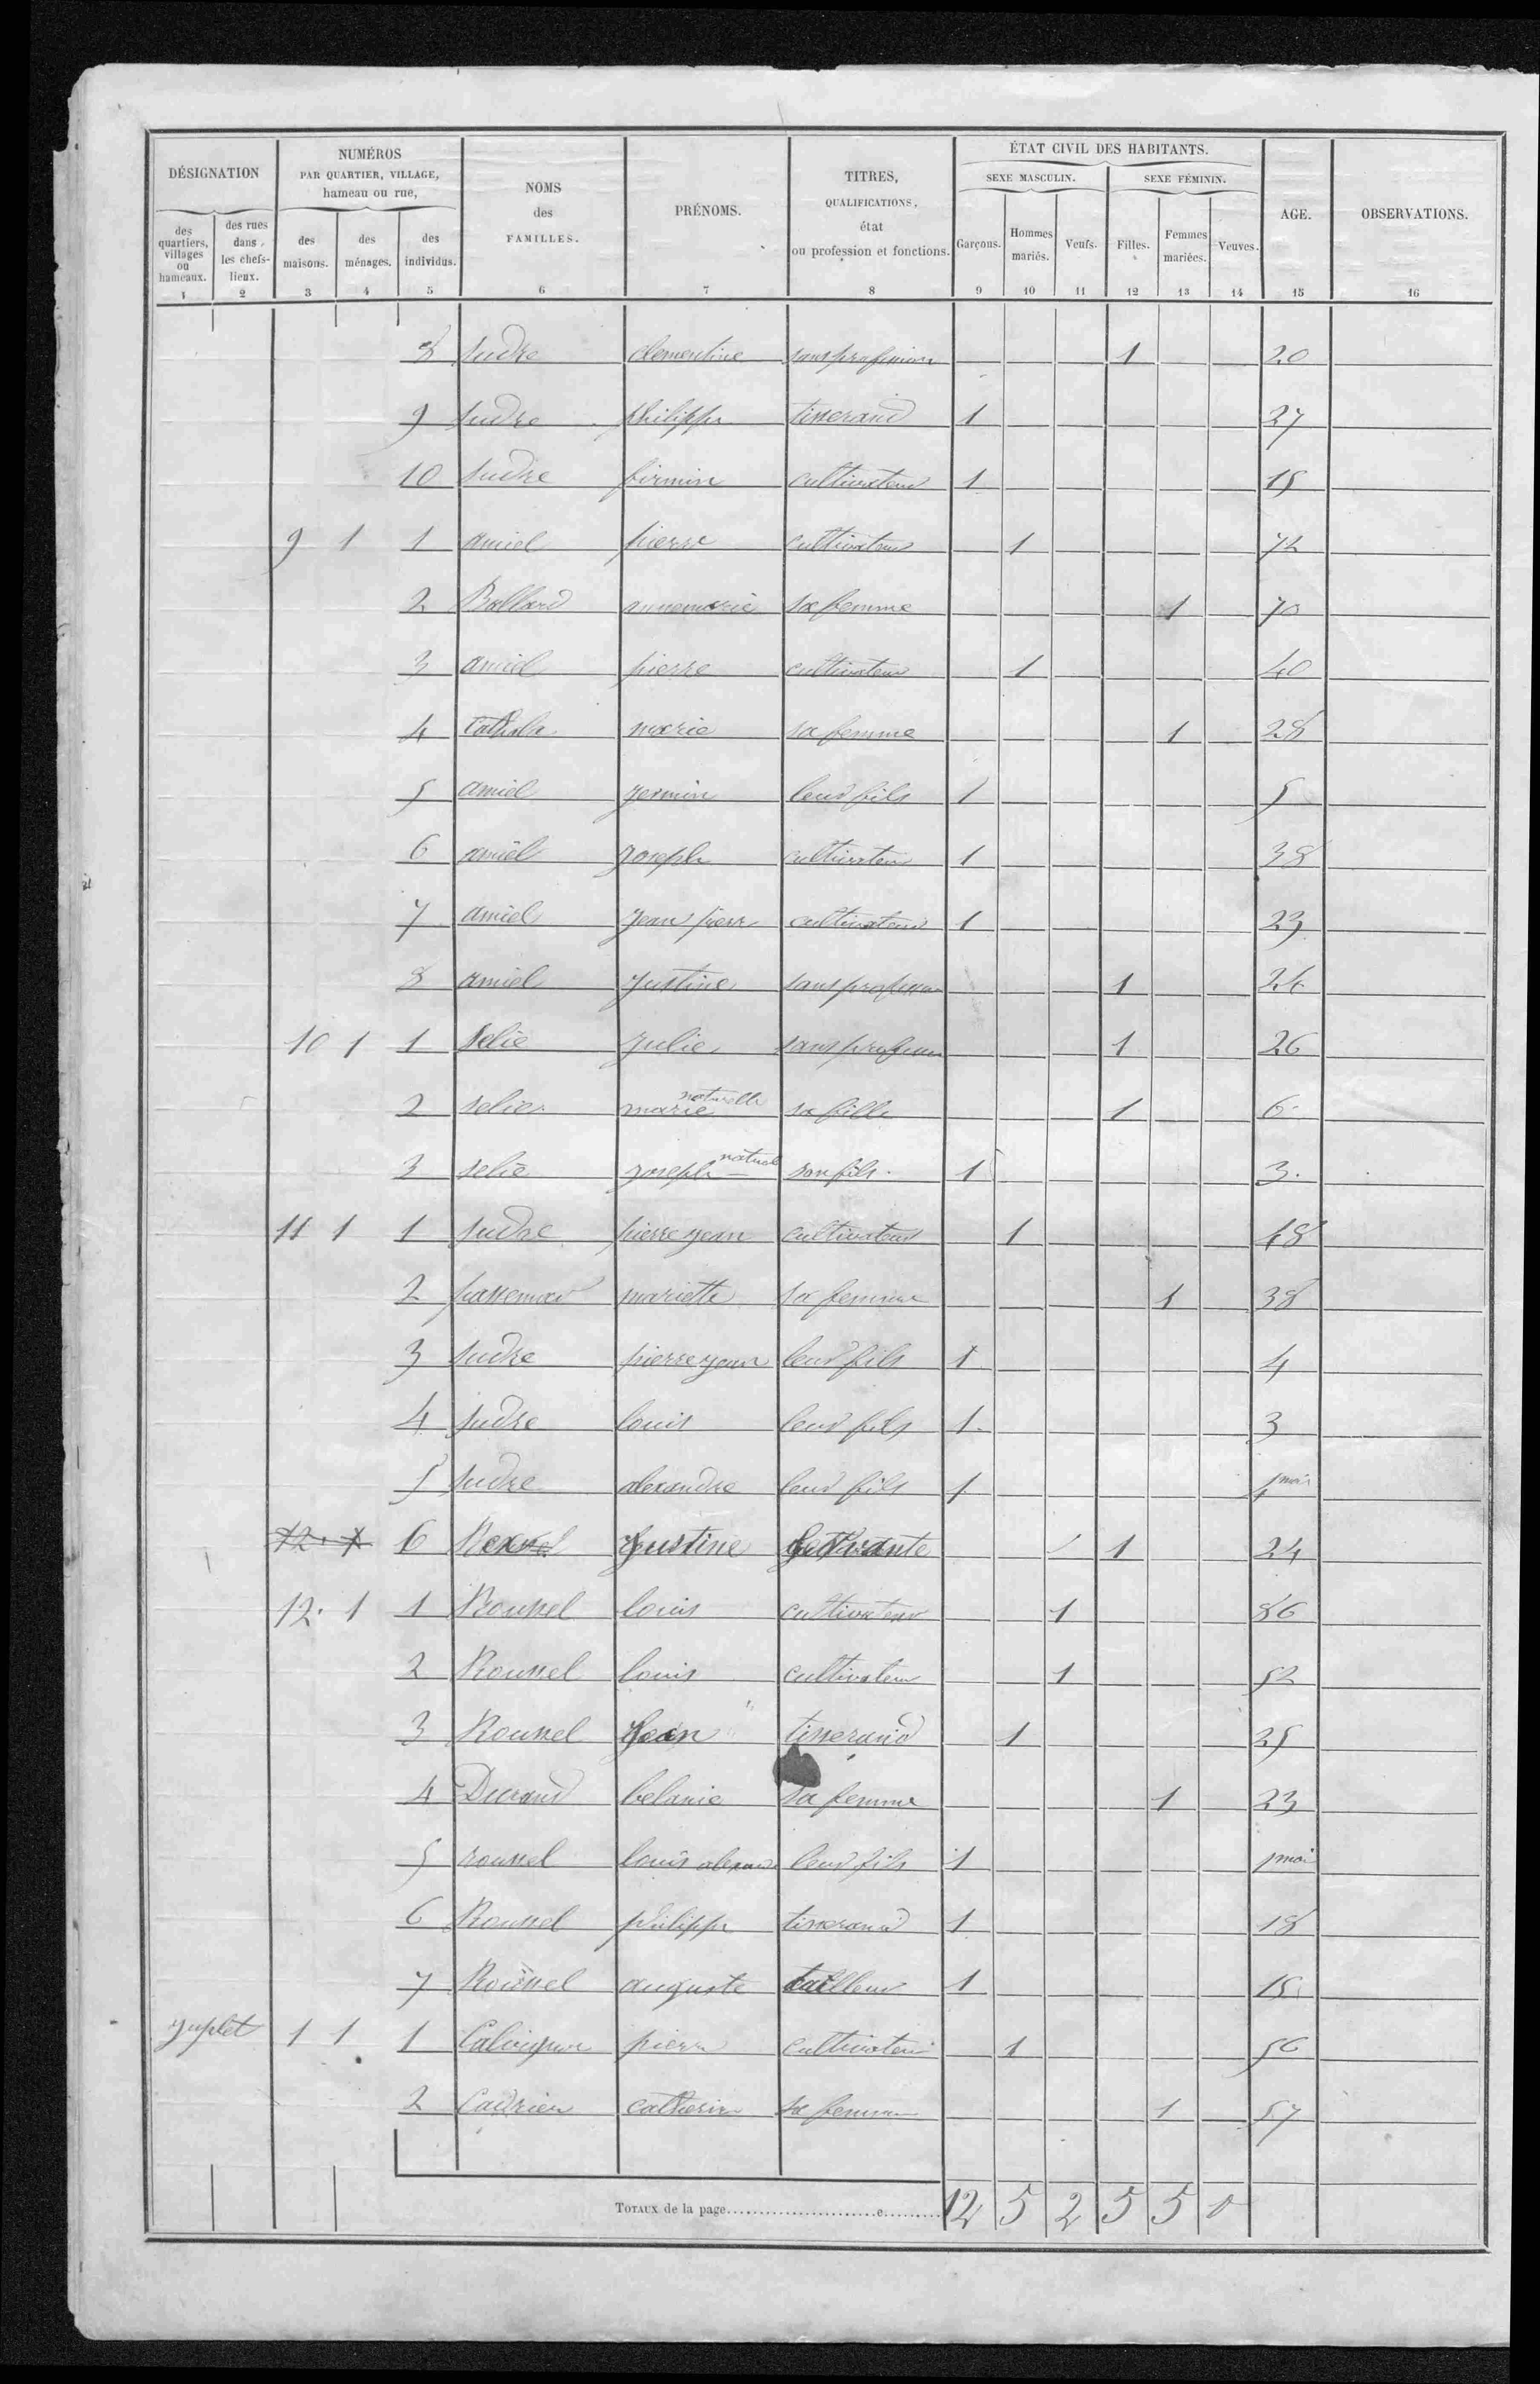 DÉSIGNATION
des quartiers, villages ou hameaux.
des rues dans les chefs-lieux.
NUMÉROS
PAR QUARTIER, VILLAGE,
hameau ou rue,
des maisons.
des ménages.
des individus.
NOMS
des
FAMILLES.
PRÉNOMS.
TITRES,
QUALIFICATIONS,
état
ou profession et fonctions.
ÉTAT CIVIL DES HABITANTS.
SEXE MASCULIN.
SEXE FÉMININ.
Garçons.
Hommes mariés.
Veufs.
Filles.
Femmes mariées.
Veuves.
AGE.
OBSERVATIONS.
1 2 3 4 5 6 7 8 9 10 11 12 13 14 15 16
8 sudre clementine sans profession 1 20
9 sudre philippe tisserand 1 27
10 sudre firmin cultivateur 1 15
9 1 1 amiel pierre cultivateur 1 72
2 Ballard annemarie sa femme 1 70
3 amiel pierre cultivateur 1 40
4 Cathala marie sa femme 1 28
5 amiel germin leur fils 1 5
6 amiel joseph cultivateur 1 38
7 amiel jean pierr cultivateur 1 23
8 amiel justine sans profession 1 24
10 1 1 selie julie sans profession 1 26
2 selie marie naturelle sa fille 1 6
3 selie joseph naturel son fils 1 3
11 1 1 sudre pierre jean cultivateur 1 48
2 passemar mariette sa femme 1 38
3 sudre pierre jean leur fils 1 4
4 sudre louis leur fils 1 3
5 sudre alexandre leur fils 1 1 mois
12 1 6 justine 1 24
12 1 1 Roussel louis cultivateur 1 86
2 Roussel louis cultivateur 1 52
3 Roussel Jean tisserand 1 25
4 Durand belanie sa femme 1 23
5 roussel louis alexand leur fils 1 1 moi
6 Roussel philippe tisserand 1 18
7 Roussel auguste tailleur 1 15
juplet 1 1 1 pierre cultivateur 1 56
2 Cadrieu catherine sa femme 1 57
TOTAUX de la page 12 5 2 5 5 0